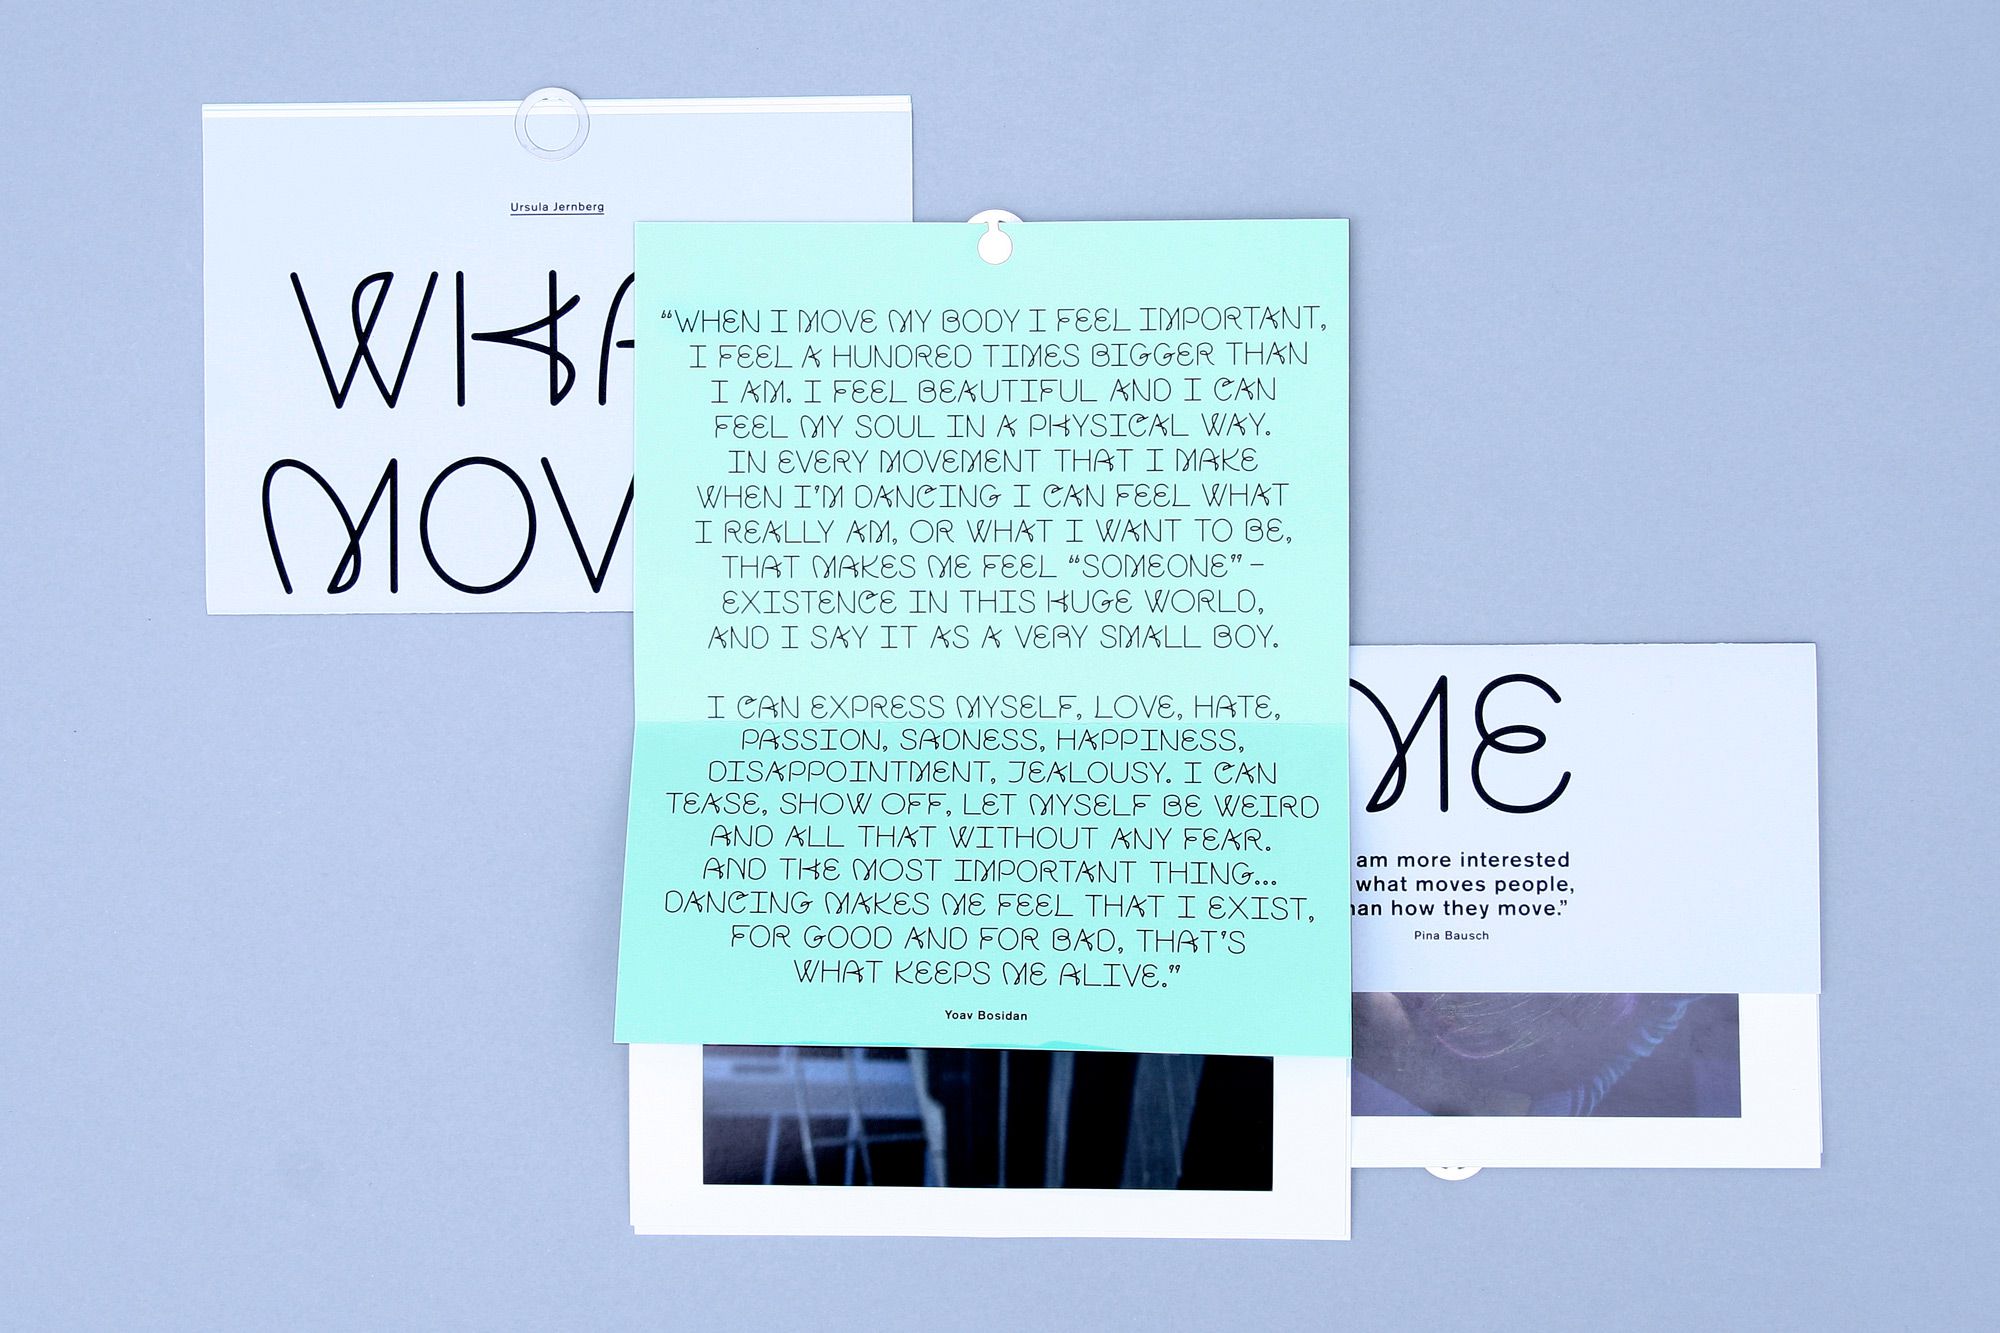 Ursula Jernberg
WHA
MOV
“WHEN I MOVE MY BODY I FEEL IMPORTANT,
I FEEL A HUNDRED TIMES BIGGER THAN
I AM. I FEEL BEAUTIFUL AND I CAN
FEEL MY SOUL IN A PHYSICAL WAY.
IN EVERY MOVEMENT THAT I MAKE
WHEN I’M DANCING I CAN FEEL WHAT
I REALLY AM, OR WHAT I WANT TO BE,
THAT MAKES ME FEEL “SOMEONE” –
EXISTENCE IN THIS HUGE WORLD,
AND I SAY IT AS A VERY SMALL BOY.
I CAN EXPRESS MYSELF, LOVE, HATE,
PASSION, SADNESS, HAPPINESS,
DISAPPOINTMENT, JEALOUSY. I CAN
TEASE, SHOW OFF, LET MYSELF BE WEIRD
AND ALL THAT WITHOUT ANY FEAR.
AND THE MOST IMPORTANT THING...
DANCING MAKES ME FEEL THAT I EXIST,
FOR GOOD AND FOR BAD, THAT’S
WHAT KEEPS ME ALIVE.”
Yoav Bosidan
ME
am more interested
what moves people,
han how they move.”
Pina Bausch